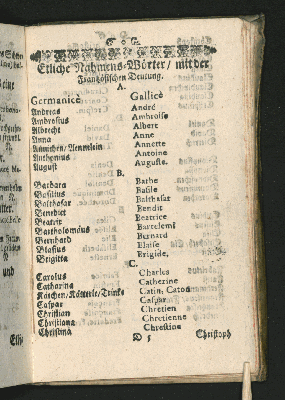 Etliche Nahmens-Wörter/ mit der
Frantzösischen Deutung.
A.
Germanicè Gallicè
Andreas André
Ambrosius Ambroise
Albrecht Albert
Anna Anne
Annichen/ Aennelein Annette
Anthonius Antoine
August Auguste.
B.
Barbara Barbe
Basilius Basile
Balthasar Balthasar
Benedict Bendit
Beatrix Beatrice
Bartholomäus Bartelemi
Bernhard Bernard
Blasius Blaise
Brigitta Brigide,
C.
Carolus Charles
Catharina Catherine
Catin, Caton
Caspar Caspar
Christian Chretien
Christiana Chretienne
Christina Chrestine
D 5 Christoph